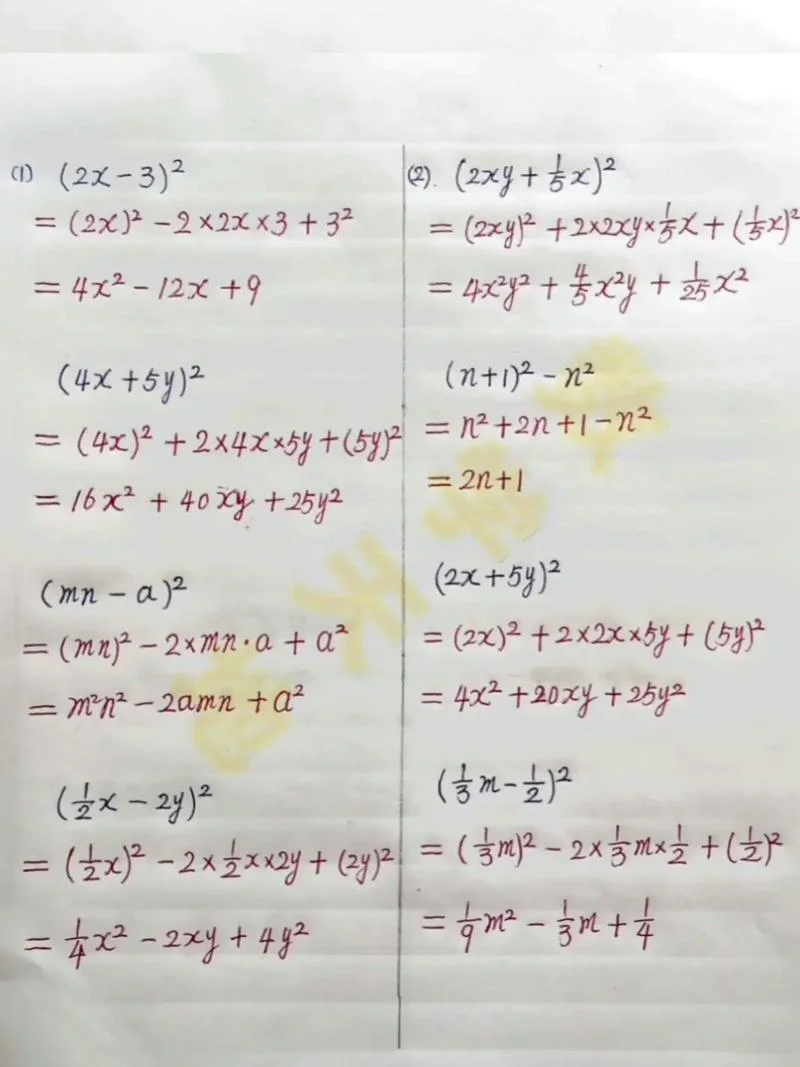 (1) (2x-3)²
= (2x)² - 2×2x×3 + 3²
= 4x² - 12x + 9
(4x+5y)²
= (4x)² + 2×4x×5y + (5y)²
= 16x² + 40xy + 25y²
(mn - a)²
= (mn)² - 2×mn·a + a²
= m²n² - 2amn + a²
(½x - 2y)²
= (½x)² - 2×½x×2y + (2y)²
= ¼x² - 2xy + 4y²
(2). (2xy + ⅕x)²
= (2xy)² + 2×2xy×⅕x + (⅕x)²
= 4x²y² + ⅘x²y + 1/25x²
(n+1)² - n²
= n² + 2n + 1 - n²
= 2n+1
(2x+5y)²
= (2x)² + 2×2x×5y + (5y)²
= 4x² + 20xy + 25y²
(⅓m - ½)²
= (⅓m)² - 2×⅓m×½ + (½)²
= 1/9m² - ⅓m + ¼